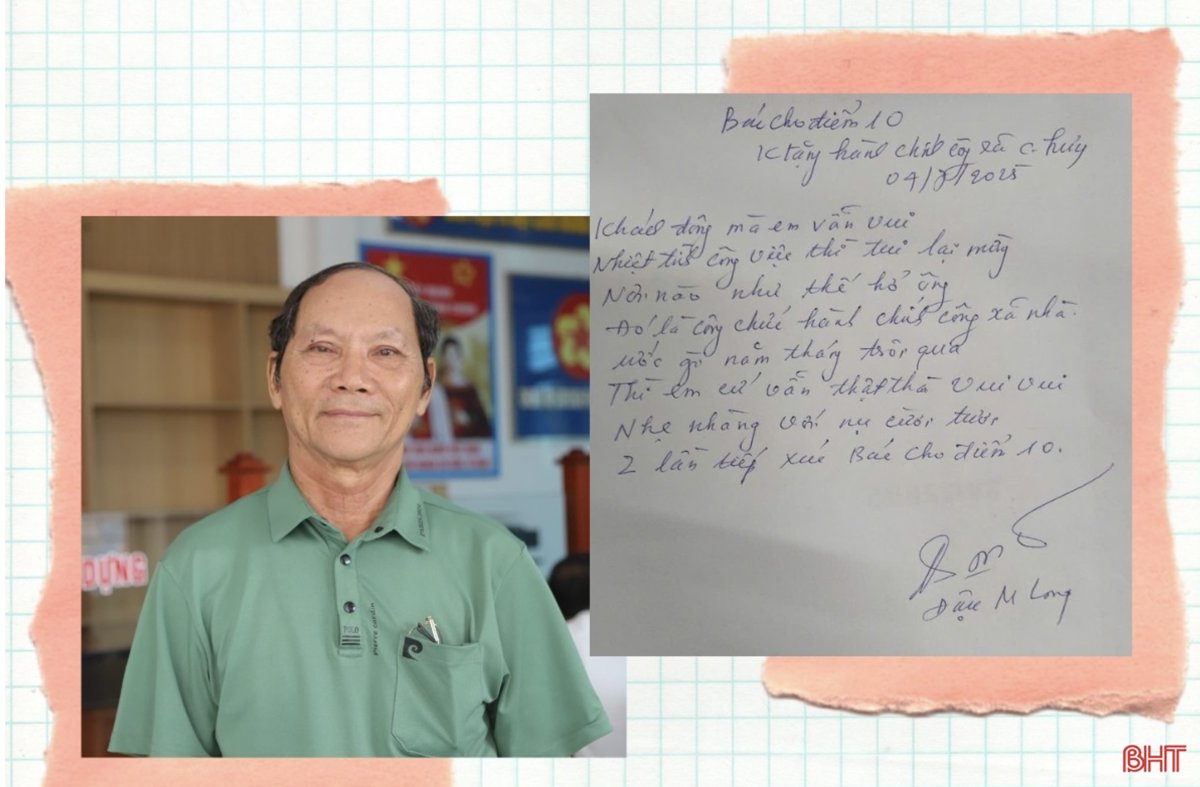 Bác cho điểm 10
K tặng hành chính công xã C. Huy
04/8/2025
Khách đông mà em vẫn vui
Nhiệt tình công việc thì tui lại mừng
Nơi nào như thế hở ông
Đó là công chức hành chính công xã nhà.
ước gì năm tháng trôi qua
Thì em cứ vẫn thật thà vui vui
Nhẹ nhàng với nụ cười tươi
2 lần tiếp xúc Bác cho điểm 10.
Đậu M Long
DỰNG
POLO
pierre cardin
BHT